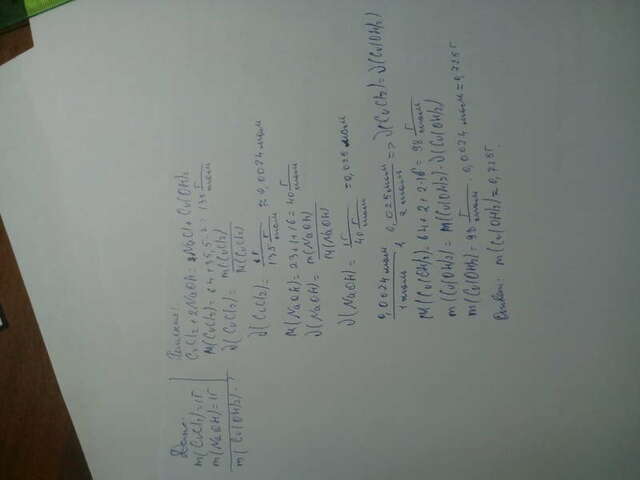 Дано:
m(CuCl2)=1г
m(NaOH)=1г
m(Cu(OH)2)-?
Решение:
CuCl2+2NaOH=2NaCl+Cu(OH)2
M(CuCl2)=64+35,5·2=135 г/моль
ν(CuCl2)=m(CuCl2)/M(CuCl2)
ν(CuCl2)=1г/135 г/моль≈0,0074 моль
M(NaOH)=23+1+16=40 г/моль
ν(NaOH)=m(NaOH)/M(NaOH)
ν(NaOH)=1г/40 г/моль=0,025 моль
0,0074 моль/1 моль 0,025 моль/2 моль=>ν(CuCl2)=ν(Cu(OH)2)
M(Cu(OH)2)=64+2+2·16=98 г/моль
m(Cu(OH)2)=M(Cu(OH)2)·ν(Cu(OH)2)
m(Cu(OH)2)=98 г/моль·0,0074 моль=0,725г
Ответ: m(Cu(OH)2)=0,725г.